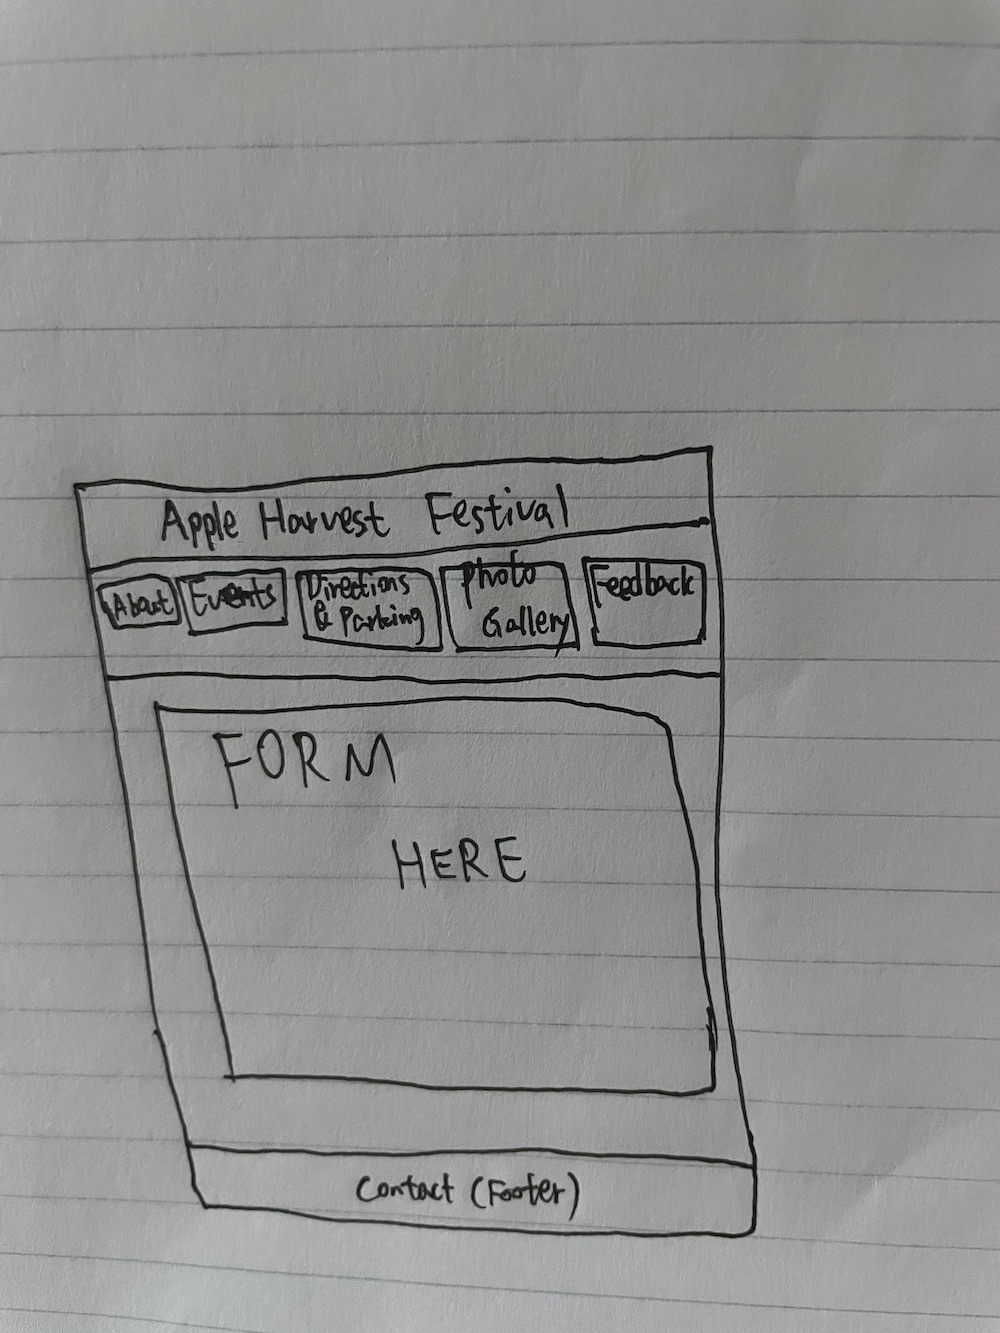 Apple Harvest Festival
About
Events
Directions
& Parking
Photo
Gallery
Feedback
FORM
HERE
Contact (Footer)